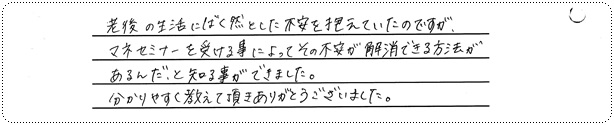 老後の生活にばく然とした不安を抱えていたのですが、
マネセミナーを受ける事によってその不安が解消できる方法が
あるんだ、と知る事ができました。
分かりやすく教えて頂きありがとうございました。